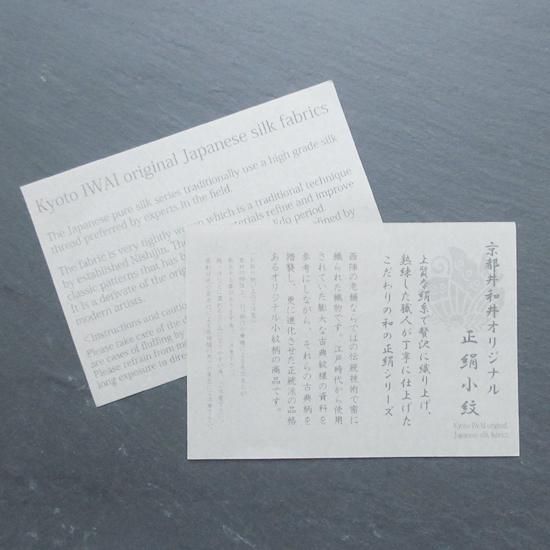 Kyoto IWAI original Japanese silk fabrics
The Japanese pure silk series traditionally use a high grade silk
thread preferred by experts. In the field.
The fabric is very tightly wo
n which is a traditional technique
by established Nishijin. Th
aterials refine and improve
classic patterns that has b
do period.
It is a derivate of the origi
fined by
modern artists.
Instructions and cautio
Please take care of the d
are cases of fluffing by
Please refrain from mo
long exposure to dire
京都井和井オリジナル
正絹小紋
Kyoto IWAI original
Japanese silk fabrics
上質な絹糸で贅沢に織り上げ、
熟練した職人が丁寧に仕上げた
こだわりの和の正絹シリーズ
西陣の老舗ならではの伝統技術で密に
織られた織物です。江戸時代から使用
されていた膨大な古典紋様の資料を
参考にしながら、それらの古典柄を
踏襲し、更に進化させた正統派の品格
あるオリジナル小紋柄の商品です。